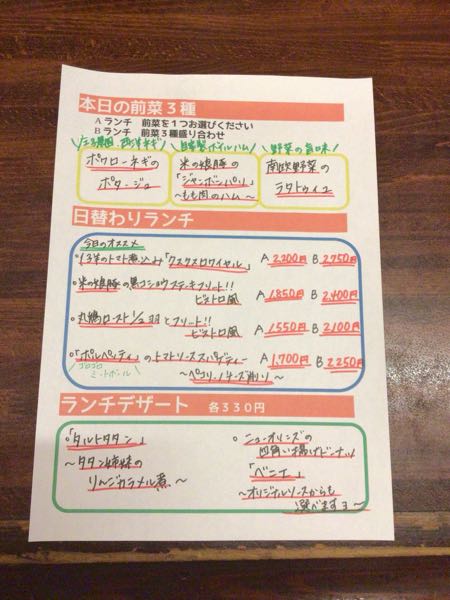 本日の前菜3種
Aランチ 前菜を1つお選びください
Bランチ 前菜3種盛り合わせ
自家製ボイルハム
野菜の旨味
ポワローネギの
ポタージュ
米の娘豚の
「ジャンボンパリ」
〜もも肉のハム〜
南欧野菜の
ラタトゥイユ
日替わりランチ
今日のオススメ
・仔羊のトマト煮込み「クスクスロワイヤル」 A 2,200円 B 2,750円
・米の娘豚の黒コショウステーキフリット!! A 1,850円 B 2,400円
ビストロ風
・丸鶏ロースト1/2羽とフリット!! A 1,550円 B 2,100円
ビストロ風
・「ポルペッティ」のトマトソーススパゲティー A 1,700円 B 2,250円
ゴロゴロ
ミートボール
〜ペコリーノチーズ削り〜
ランチデザート 各330円
・「タルトタタン」
〜タタン姉妹の
りんごカラメル煮〜
・ニューオリンズの
四角い揚げドーナツ
「ベニエ」
〜オリジナルソースからも
選べます3〜